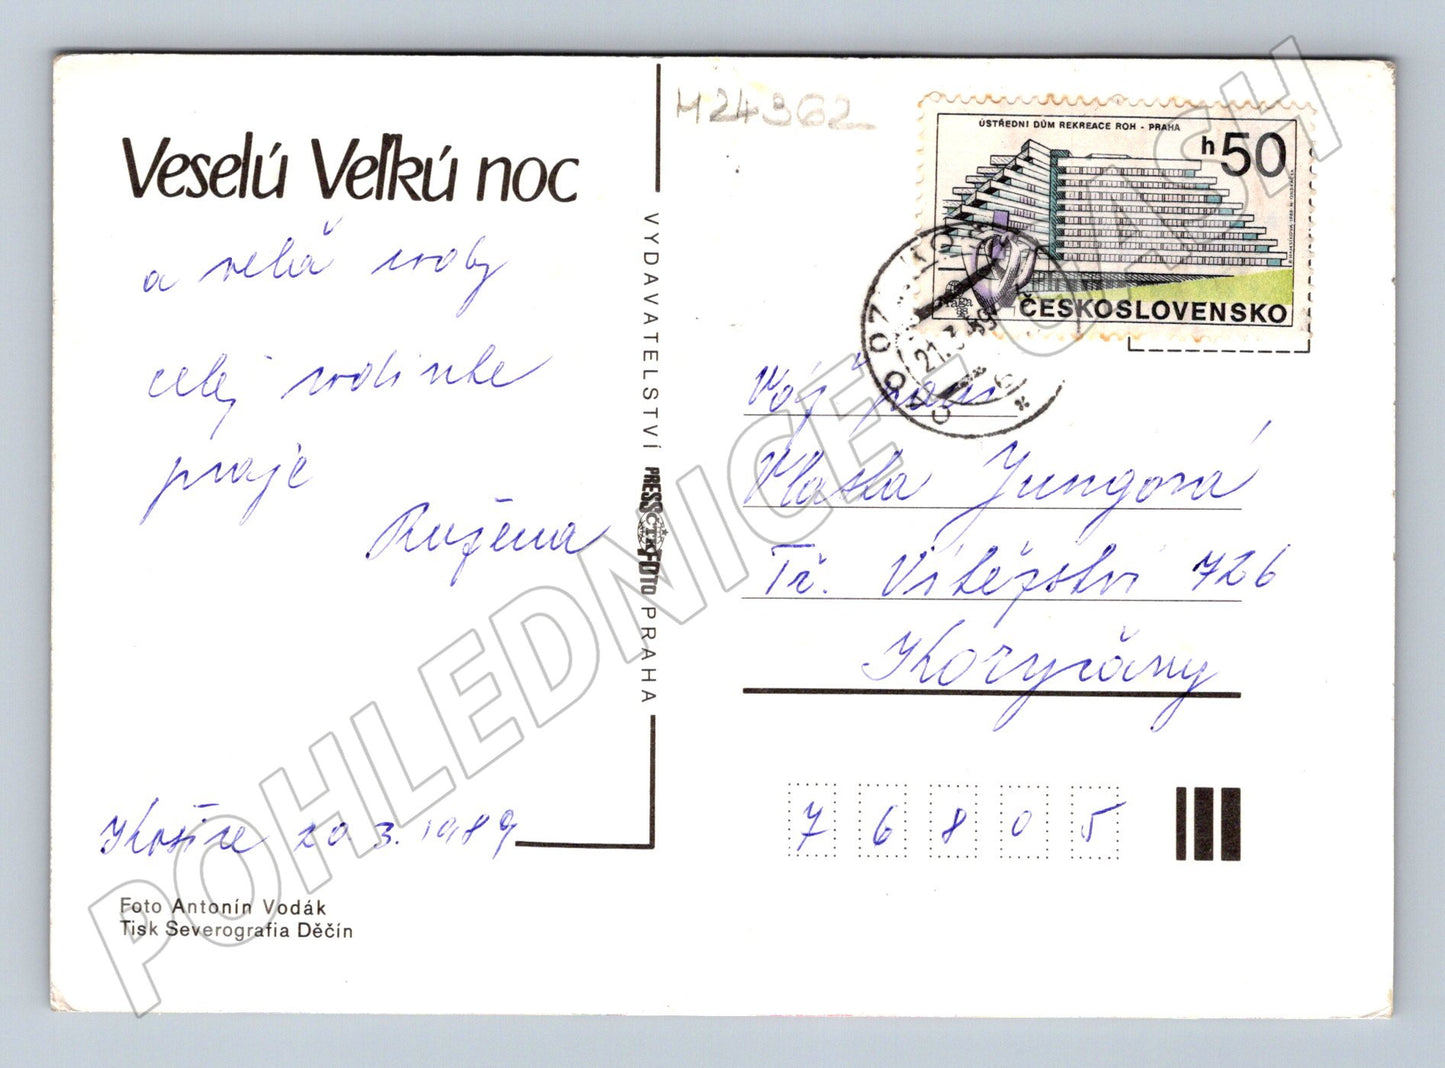 Veselú Veľkú noc
a
celej rodinke
praje
Ružena
Košice 20.3.1989
Foto Antonín Vodák
Tisk Severografia Děčín
VYDAVATELSTVÍ PRESSFOTO PRAHA
ČTK
M24362
ÚSTŘEDNÍ DŮM REKREACE ROH - PRAHA
h50
Praga 88
ČESKOSLOVENSKO
21.3.89
Váž. pani
Vlasta Jungová
Tř. Vítězství 726
Koryčany
76805
POHLEDNICE CASH